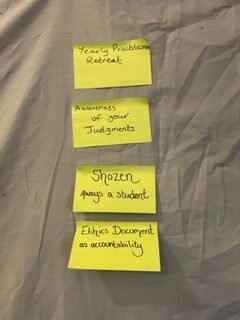 Yearly Practitioner
Retreat
Awareness
of your
Judgments
Shozen
Always a student
Ethics Document
as accountability